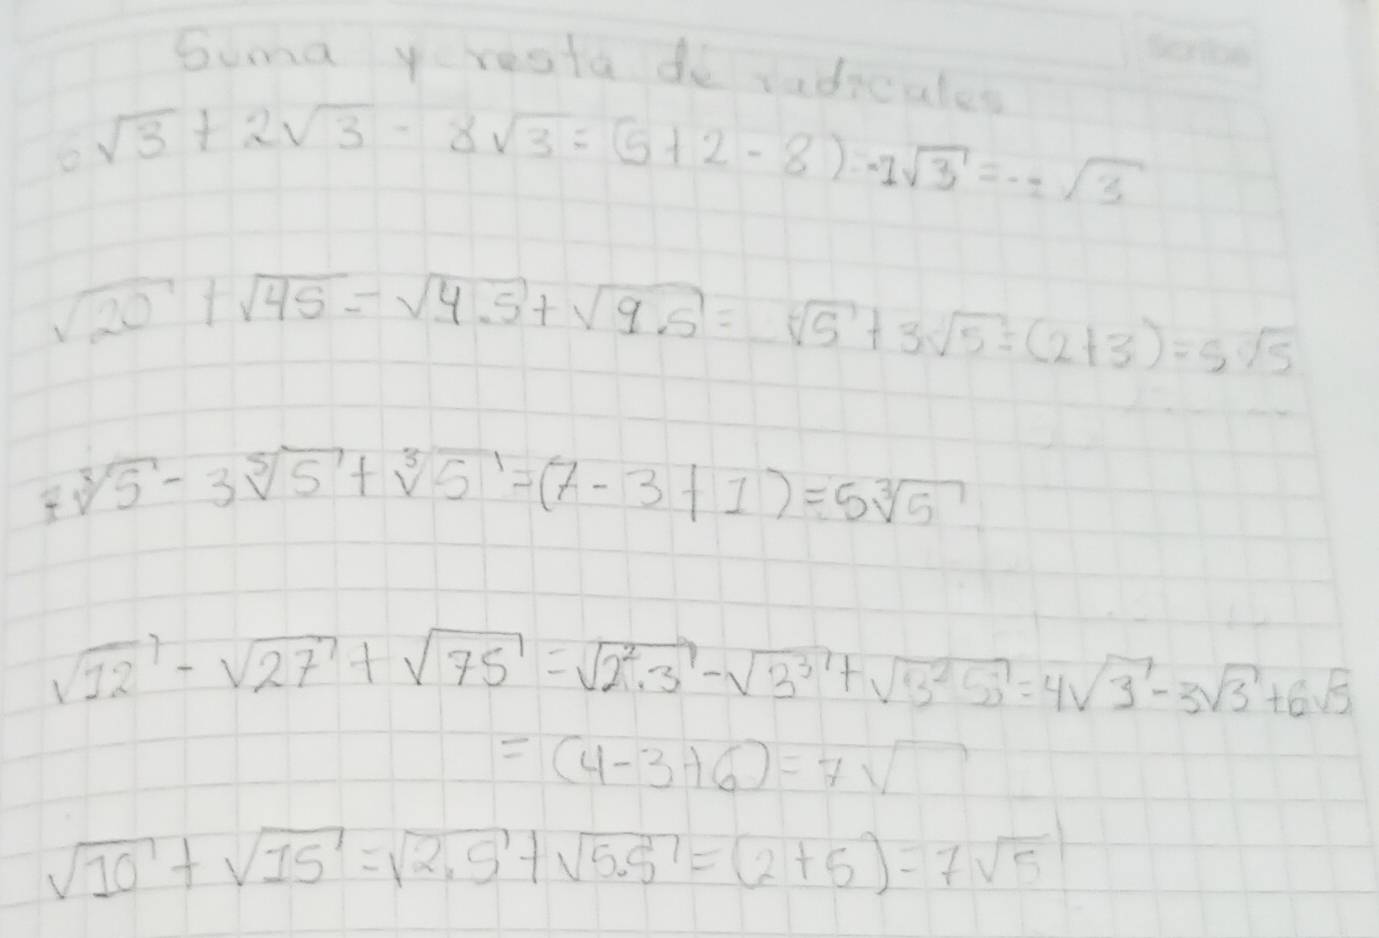 Suma y resta de radicales
√3 + 2√3 - 8√3 = (5+2-8) = -1√3 = √3
√20 + √45 = √4.5 + √9.5 = √5 + 3√5 = (2+3) = 5√5
7∛5 - 3∛5 + ∛5 = (7-3+1) = 5∛5
√12 - √27 + √75 = √2².3 - √3³ + √3² = 4√3 - 3√3 + 6√3
= (4-3+6) = 7√
√10 + √15 = √2.5 + √5.5 = (2+5) = 7√5